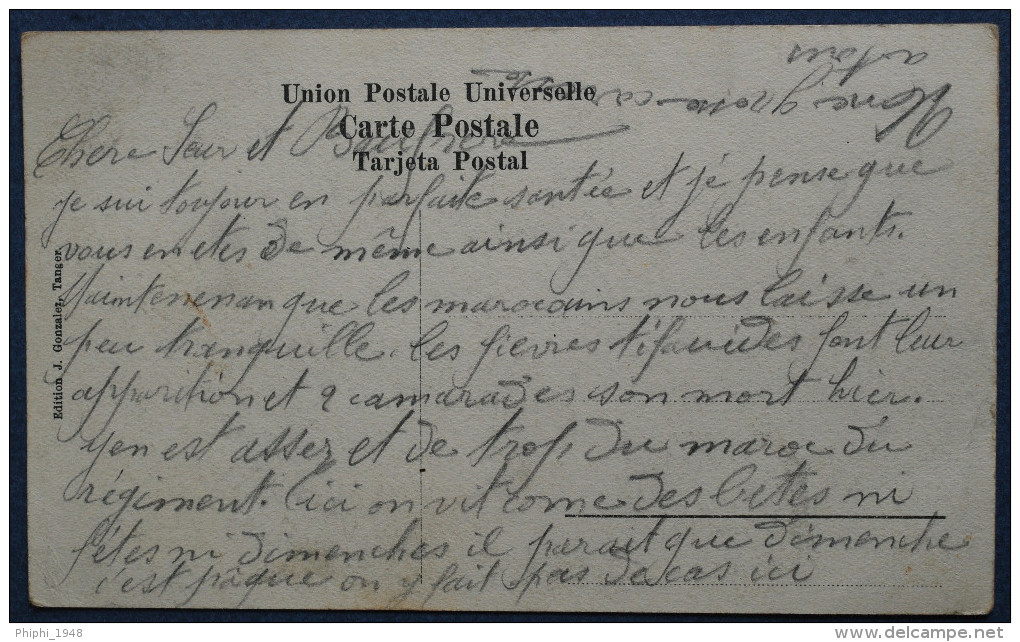 a tous
Union Postale Universelle
Carte Postale
Tarjeta Postal
Chere Seur et Beaufrere
je sui toujour en parfaite santée et je pense que
vous en etes de même ainsi que les enfants.
Maintenenan que les marocains nous laisse un
peu tranquille les fievres tifauides font leur
apparition et 2 camarades son mort hier.
yen est asser et de trop du maroc du
régiment. ici on vit come des betes ni
fêtes ni dimenches il parait que dimenche
c'est pâque on y fait pas de cas ici
Edition J. Gonzalez, Tanger.
Phiphi_1948
delcampe.net